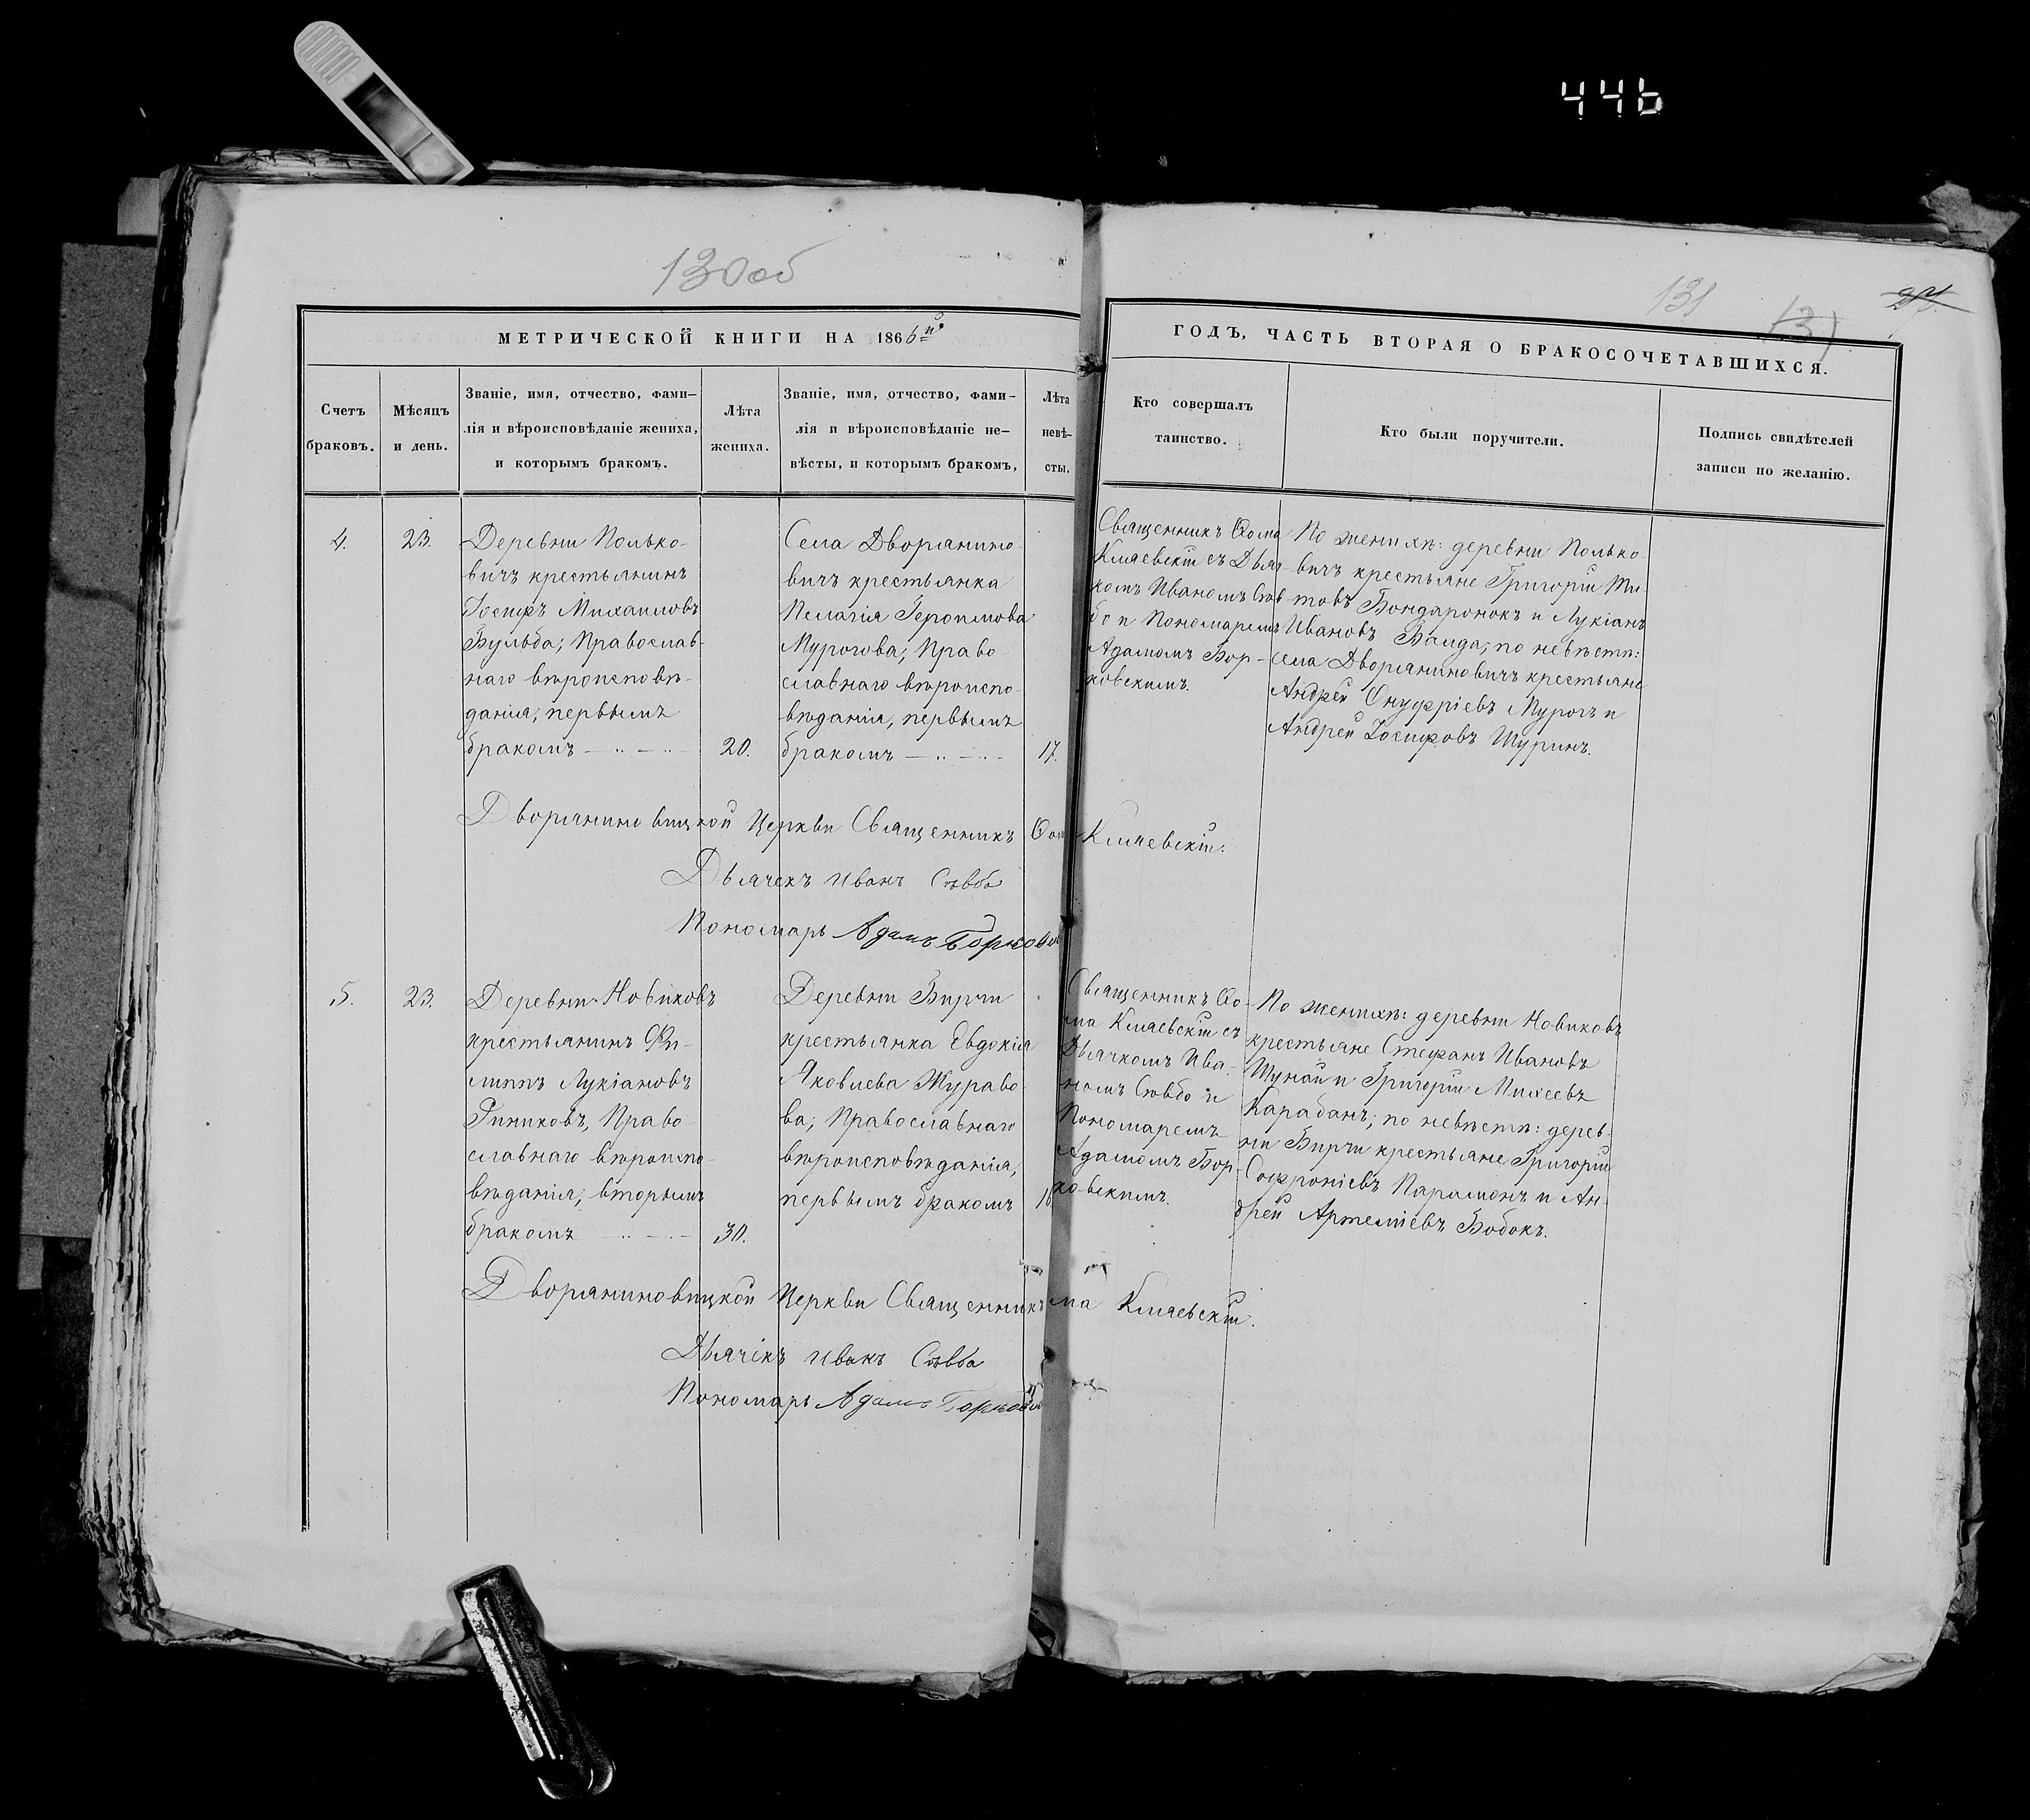 446
130об
131
131
27.
МЕТРИЧЕСКОЙ КНИГИ НА 1866й
ГОДЪ, ЧАСТЬ ВТОРАЯ О БРАКОСОЧЕТАВШИХСЯ.
Счетъ
браковъ.
Мѣсяцъ
и день.
Званіе, имя, отчество, фами-
лія и вѣроисповѣданіе жениха,
и которымъ бракомъ.
Лѣта
жениха.
Званіе, имя, отчество, фами-
лія и вѣроисповѣданіе не-
вѣсты, и которымъ бракомъ,
Лѣта
невѣ-
сты.
Кто совершалъ
таинство.
Кто были поручители.
Подпись свидѣтелей
записи по желанію.
4.
23.
Деревни Полько-
вичъ крестьянинъ
Іосифъ Михаиловъ
Бульба; Православ-
наго вѣроисповѣ-
данія, первымъ
бракомъ
20.
Села Дворянино-
вичъ крестьянка
Пелагія Героимова
Мурогова; Право-
славнаго вѣроиспо-
вѣданія, первымъ
бракомъ
17.
Священникъ Ѳома
Клаевскій съ Дьяч-
комъ Иваномъ Сѣв-
бо и Пономаремъ
Адамомъ Бор-
ковскимъ.
По женихѣ: деревни Полько-
вичъ крестьяне Григорій Ти-
товъ Бондаронокъ и Лукіанъ
Ивановъ Балда; по невѣстѣ:
села Дворяниновичъ крестьяне
Андрей Онуфріевъ Мурогъ и
Андрей Іосифовъ Шуринъ.
Дворяниновицкой Церкви Священникъ Ѳома Клаевскій.
Дьячекъ Иванъ Сѣвба
Пономарь Адамъ Борковскій
5.
23.
Деревни Новиковъ
крестьянинъ Фи-
липпъ Лукіановъ
Риниковъ, Право-
славнаго вѣроиспо-
вѣданія; вторымъ
бракомъ
30.
Деревни Бирчи
крестьянка Евдокія
Яковлева Жураво-
ва; Православнаго
вѣроисповѣданія,
первымъ бракомъ
18.
Священникъ Ѳо-
ма Клаевскій съ
Дьячкомъ Ива-
номъ Сѣвбо и
Пономаремъ
Адамомъ Бор-
ковскимъ.
По женихѣ: деревни Новиковъ
крестьяне Стефанъ Ивановъ
Шунай и Григорій Михеевъ
Карабанъ; по невѣстѣ: дерев-
ни Бирчи крестьяне Григорій
Софроніевъ Парамонъ и Ан-
дрей Артеміевъ Бобокъ.
Дворяниновицкой Церкви Священникъ Ѳома Клаевскій.
Дьячікъ Иванъ Сѣвба
Пономарь Адамъ Борковскій